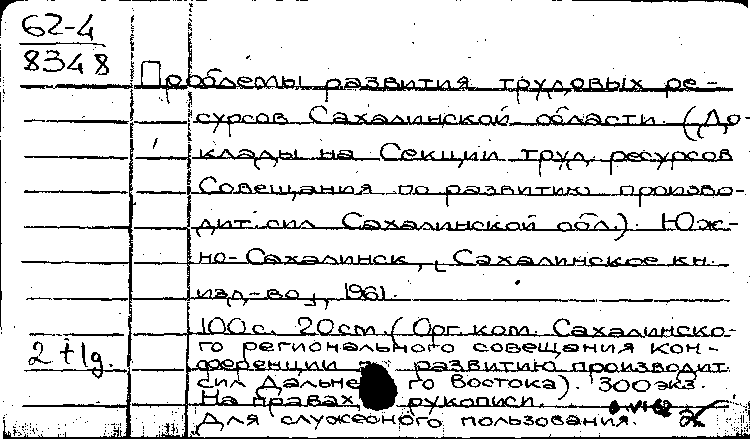 62-4
8348
Проблемы развития трудовых ре-
сурсов Сахалинской области. (До-
клады на Секции труд. ресурсов
Совещания по развитию произво-
дит. сил Сахалинской обл.). Юж-
но-Сахалинск, [Сахалинское кн.
изд-во], 1961.
100 с. 20 cm. (Орг. ком. Сахалинско-
го регионального совещания кон-
2+1g.
ференции развитию производит
сил Дальне го Востока). 300 экз.
На правах рукописи.
Для служебного пользования.
VI-62